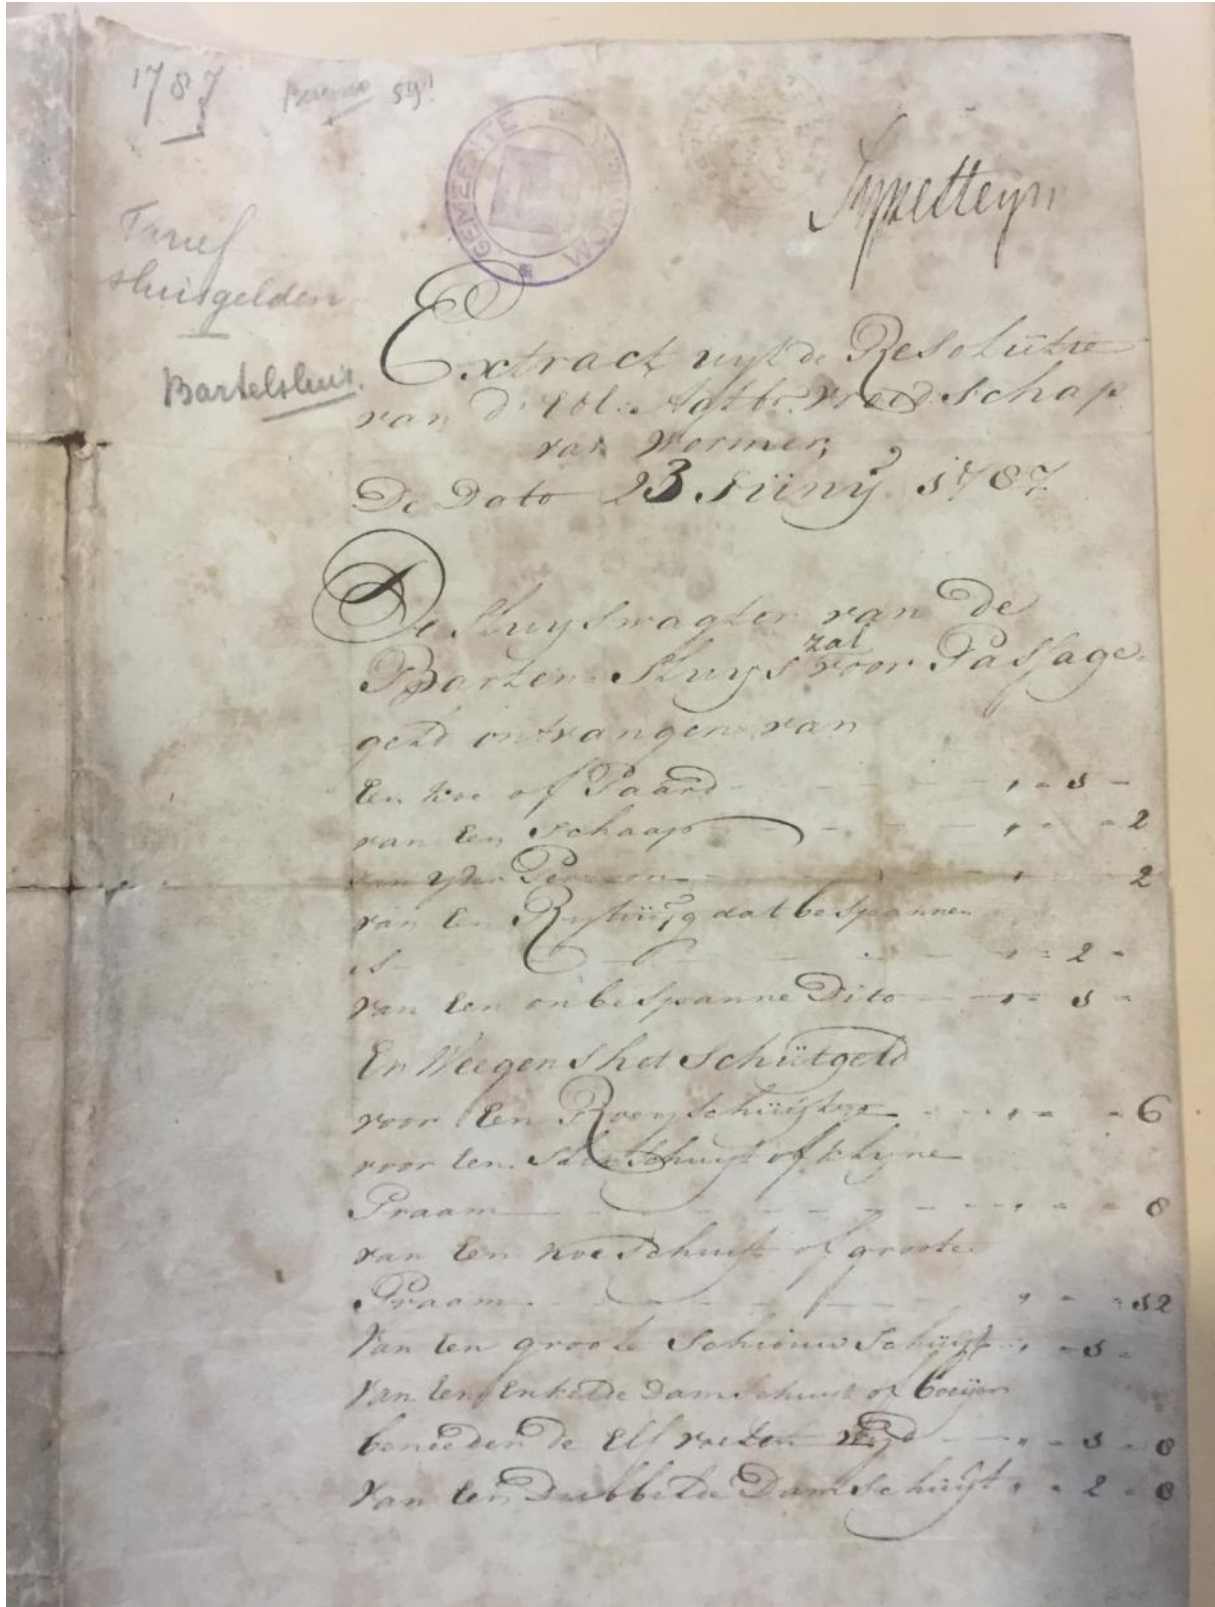 1787
Tarief
sluisgelden
Bartelsluis.
GEMEENTE
Extract uyt de Resolutie
van d' Edl: Agtbr. vroedschap
van Wormer,
De Dato 23 Junÿ 1787
De Sluyswagter van de
zal
Barten Sluys voor Passage
geld ontvangen van
Een Koe of Paard - - - , - 1 -
van Een Schaap - - - , - - 2
van yder Persoon - - - , - - 2
van Een Rytuÿg dat bespannen
is - - - , - 2 -
van Een onbespanne Dito - - , - 1 -
En Weegens het Schutgeld
voor Een Roeyschuytje - - , - - 6
voor Een Schuyt of klyne
Praam - - - , - - 8
van Een Koeschuyt of groote
Praam - - - , - - 12
Van Een groote Schuyt - , - 1 -
Van Een Enkelde Damschuyt of boeijer
beneeden de Elf voeten wyd - - , - 1 - 8
Van Een Dubbelde Damschuyt , - 2 - 8